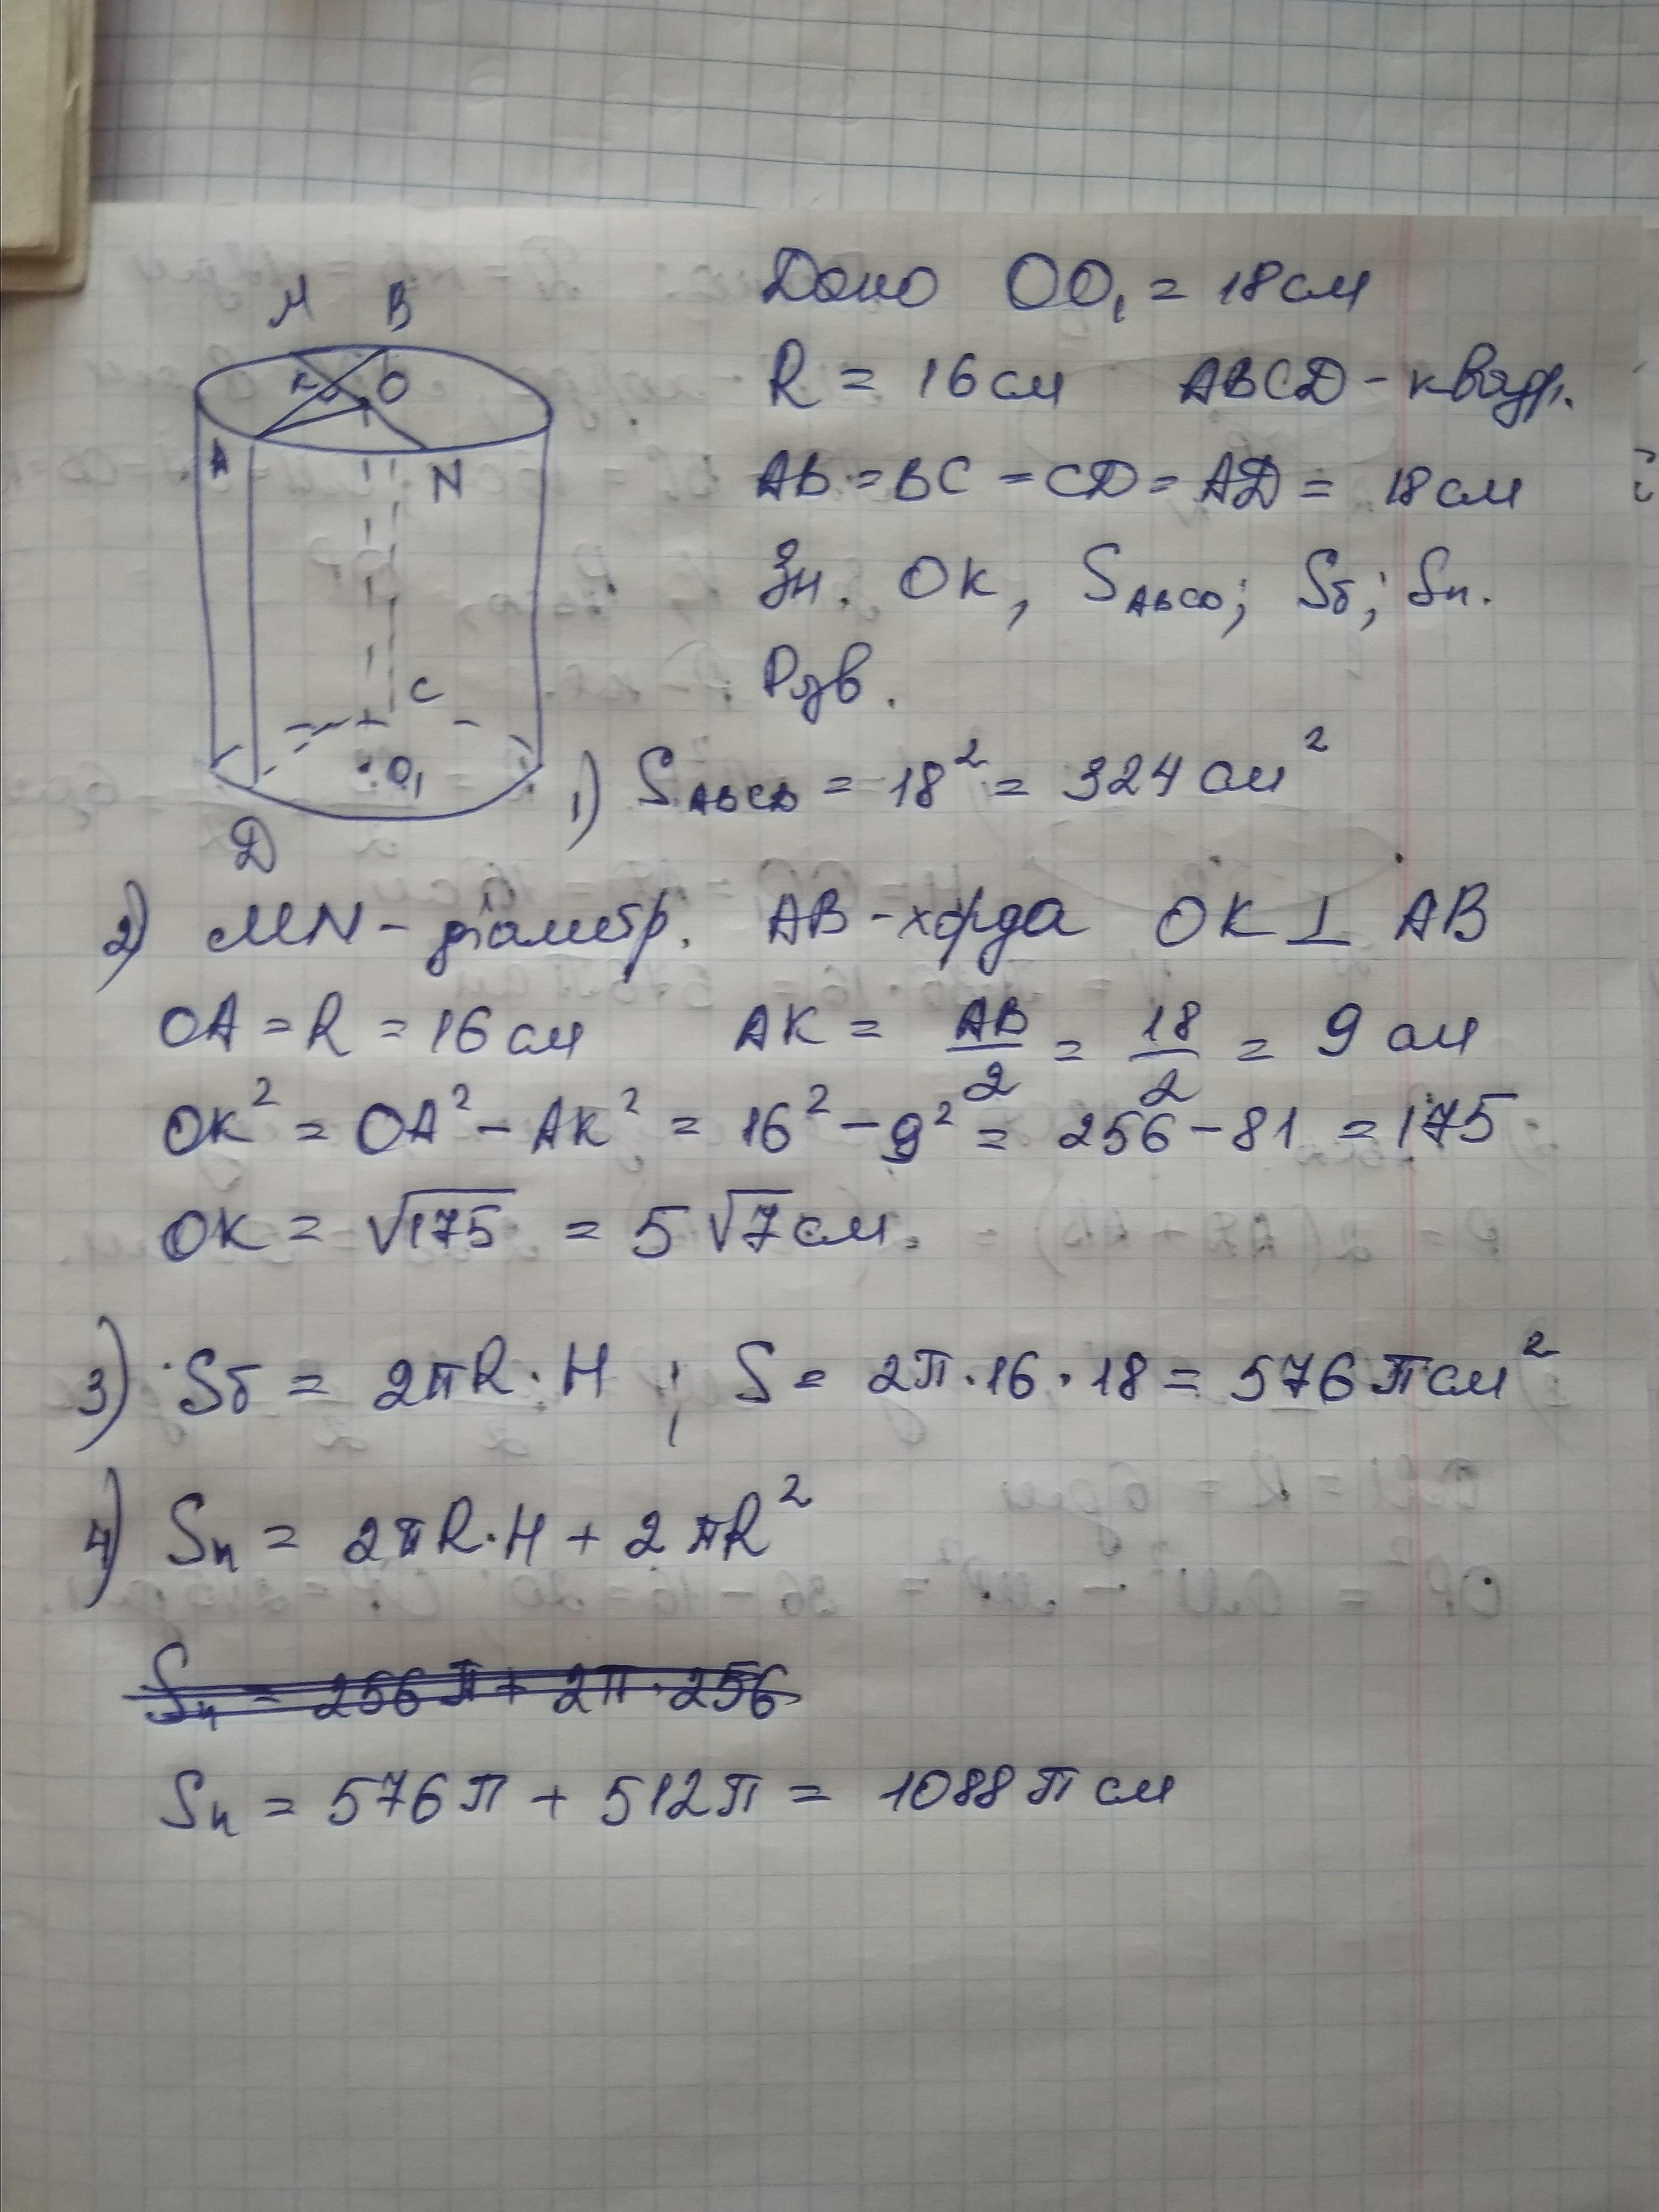 M B
K O
A
N
C
O₁
D
Дано OO₁ = 18 см
R = 16 см ABCD - квадр.
AB = BC = CD = AD = 18 см
Зн. OK, S ABCD; Sб; Sп.
Розв.
1) S ABCD = 18² = 324 см²
2) MN - діаметр. AB - хорда OK ⊥ AB
OA = R = 16 см AK = AB/2 = 18/2 = 9 см
OK² = OA² - AK² = 16² - 9² = 256 - 81 = 175
OK = √175 = 5√7 см.
3) Sб = 2πR·H ; S = 2π·16·18 = 576 π см²
4) Sп = 2πR·H + 2πR²
Sп = 256π + 2π·256
Sп = 576π + 512π = 1088π см